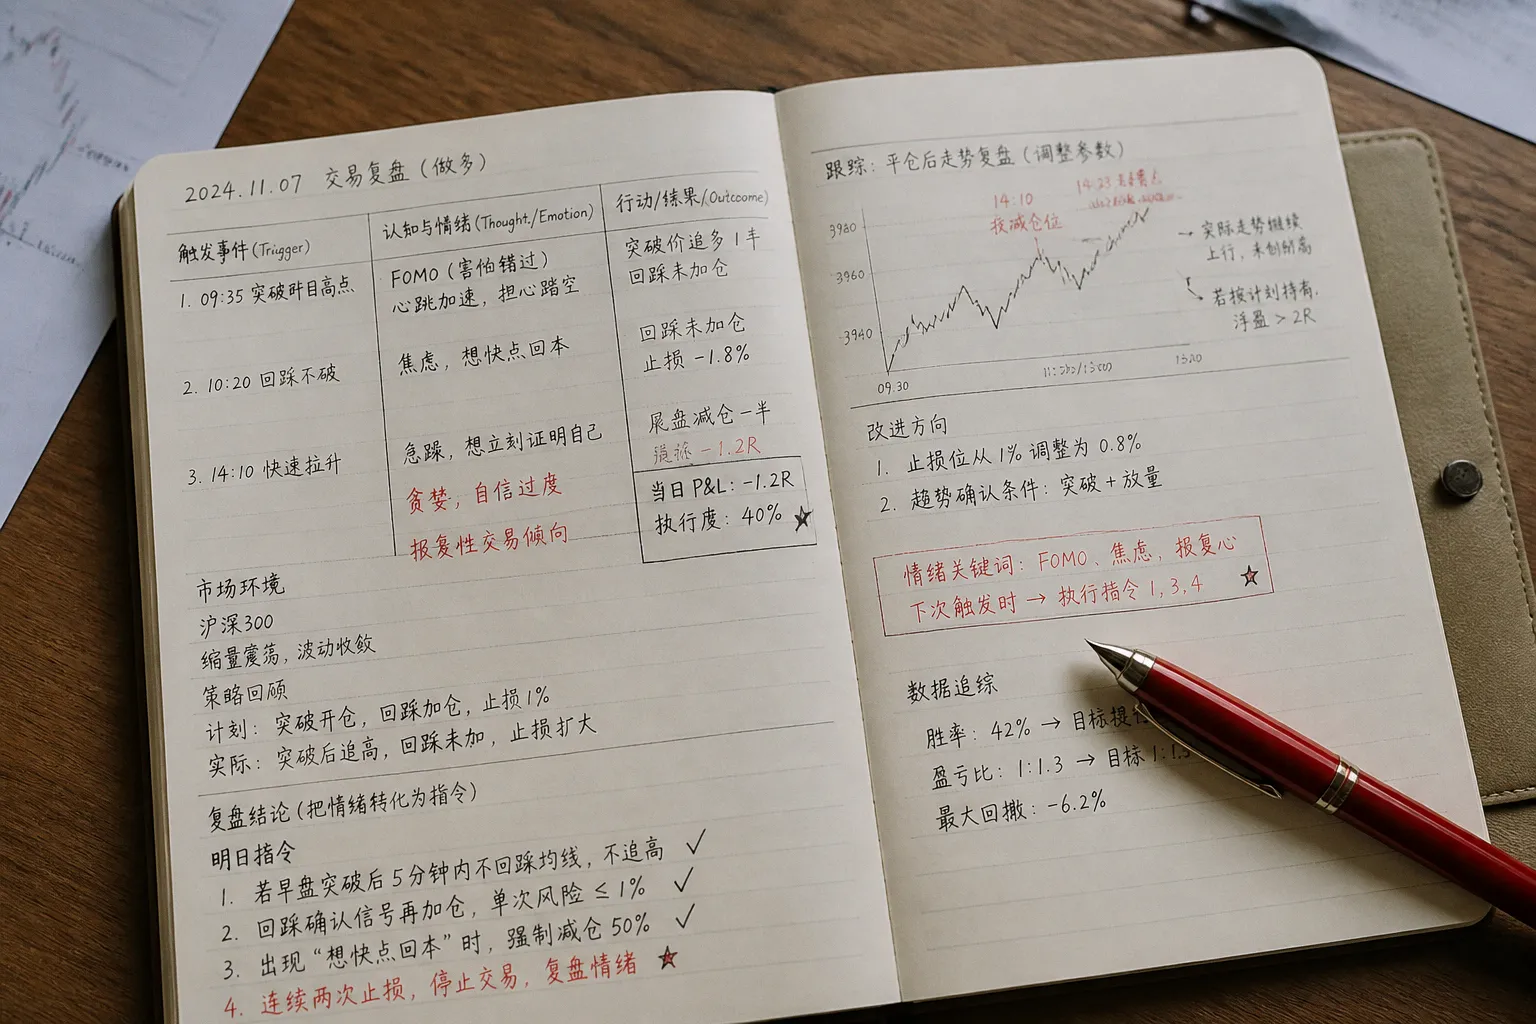 2024.11.07 交易复盘（做多）
触发事件(Trigger)
认知与情绪(Thought./Emotion)
行动/结果/(Outcoome)
1. 09:35 突破昨日高点
FOMO（害怕错过）
心跳加速，担心踏空
突破价追多 1 手
回踩未加仓
2. 10:20 回踩不破
焦虑，想快点回本
回踩未加仓
止损 -1.8%
3. 14:10 快速拉升
急躁，想立刻证明自己
贪婪，自信过度
报复性交易倾向
尾盘减仓一半
-1.2R
当日 P&L: -1.2R
执行度: 40% ★
市场环境
沪深300
缩量震荡，波动收敛
策略回顾
计划：突破开仓，回踩加仓，止损1%
实际：突破后追高，回踩未加，止损扩大
复盘结论(把情绪转化为指令)
明日指令
1. 若早盘突破后5分钟内不回踩均线，不追高 ✓
2. 回踩确认信号再加仓，单次风险 ≤ 1% ✓
3. 出现“想快点回本”时，强制减仓 50% ✓
4. 连续两次止损，停止交易，复盘情绪 ★
跟踪：平仓后走势复盘（调整参数）
14:10
我减仓位
14:23
3980
3960
3940
09.30
实际走势继续
上行，未创新高
若按计划持有，
浮盈 > 2R
改进方向
1. 止损位从 1% 调整为 0.8%
2. 趋势确认条件：突破 + 放量
情绪关键词：FOMO、焦虑，报复心
下次触发时 → 执行指令 1, 3, 4 ★
数据追综
胜率：42% → 目标提
盈亏比：1:1.3 → 目标 1:1.
最大回撤：-6.2%